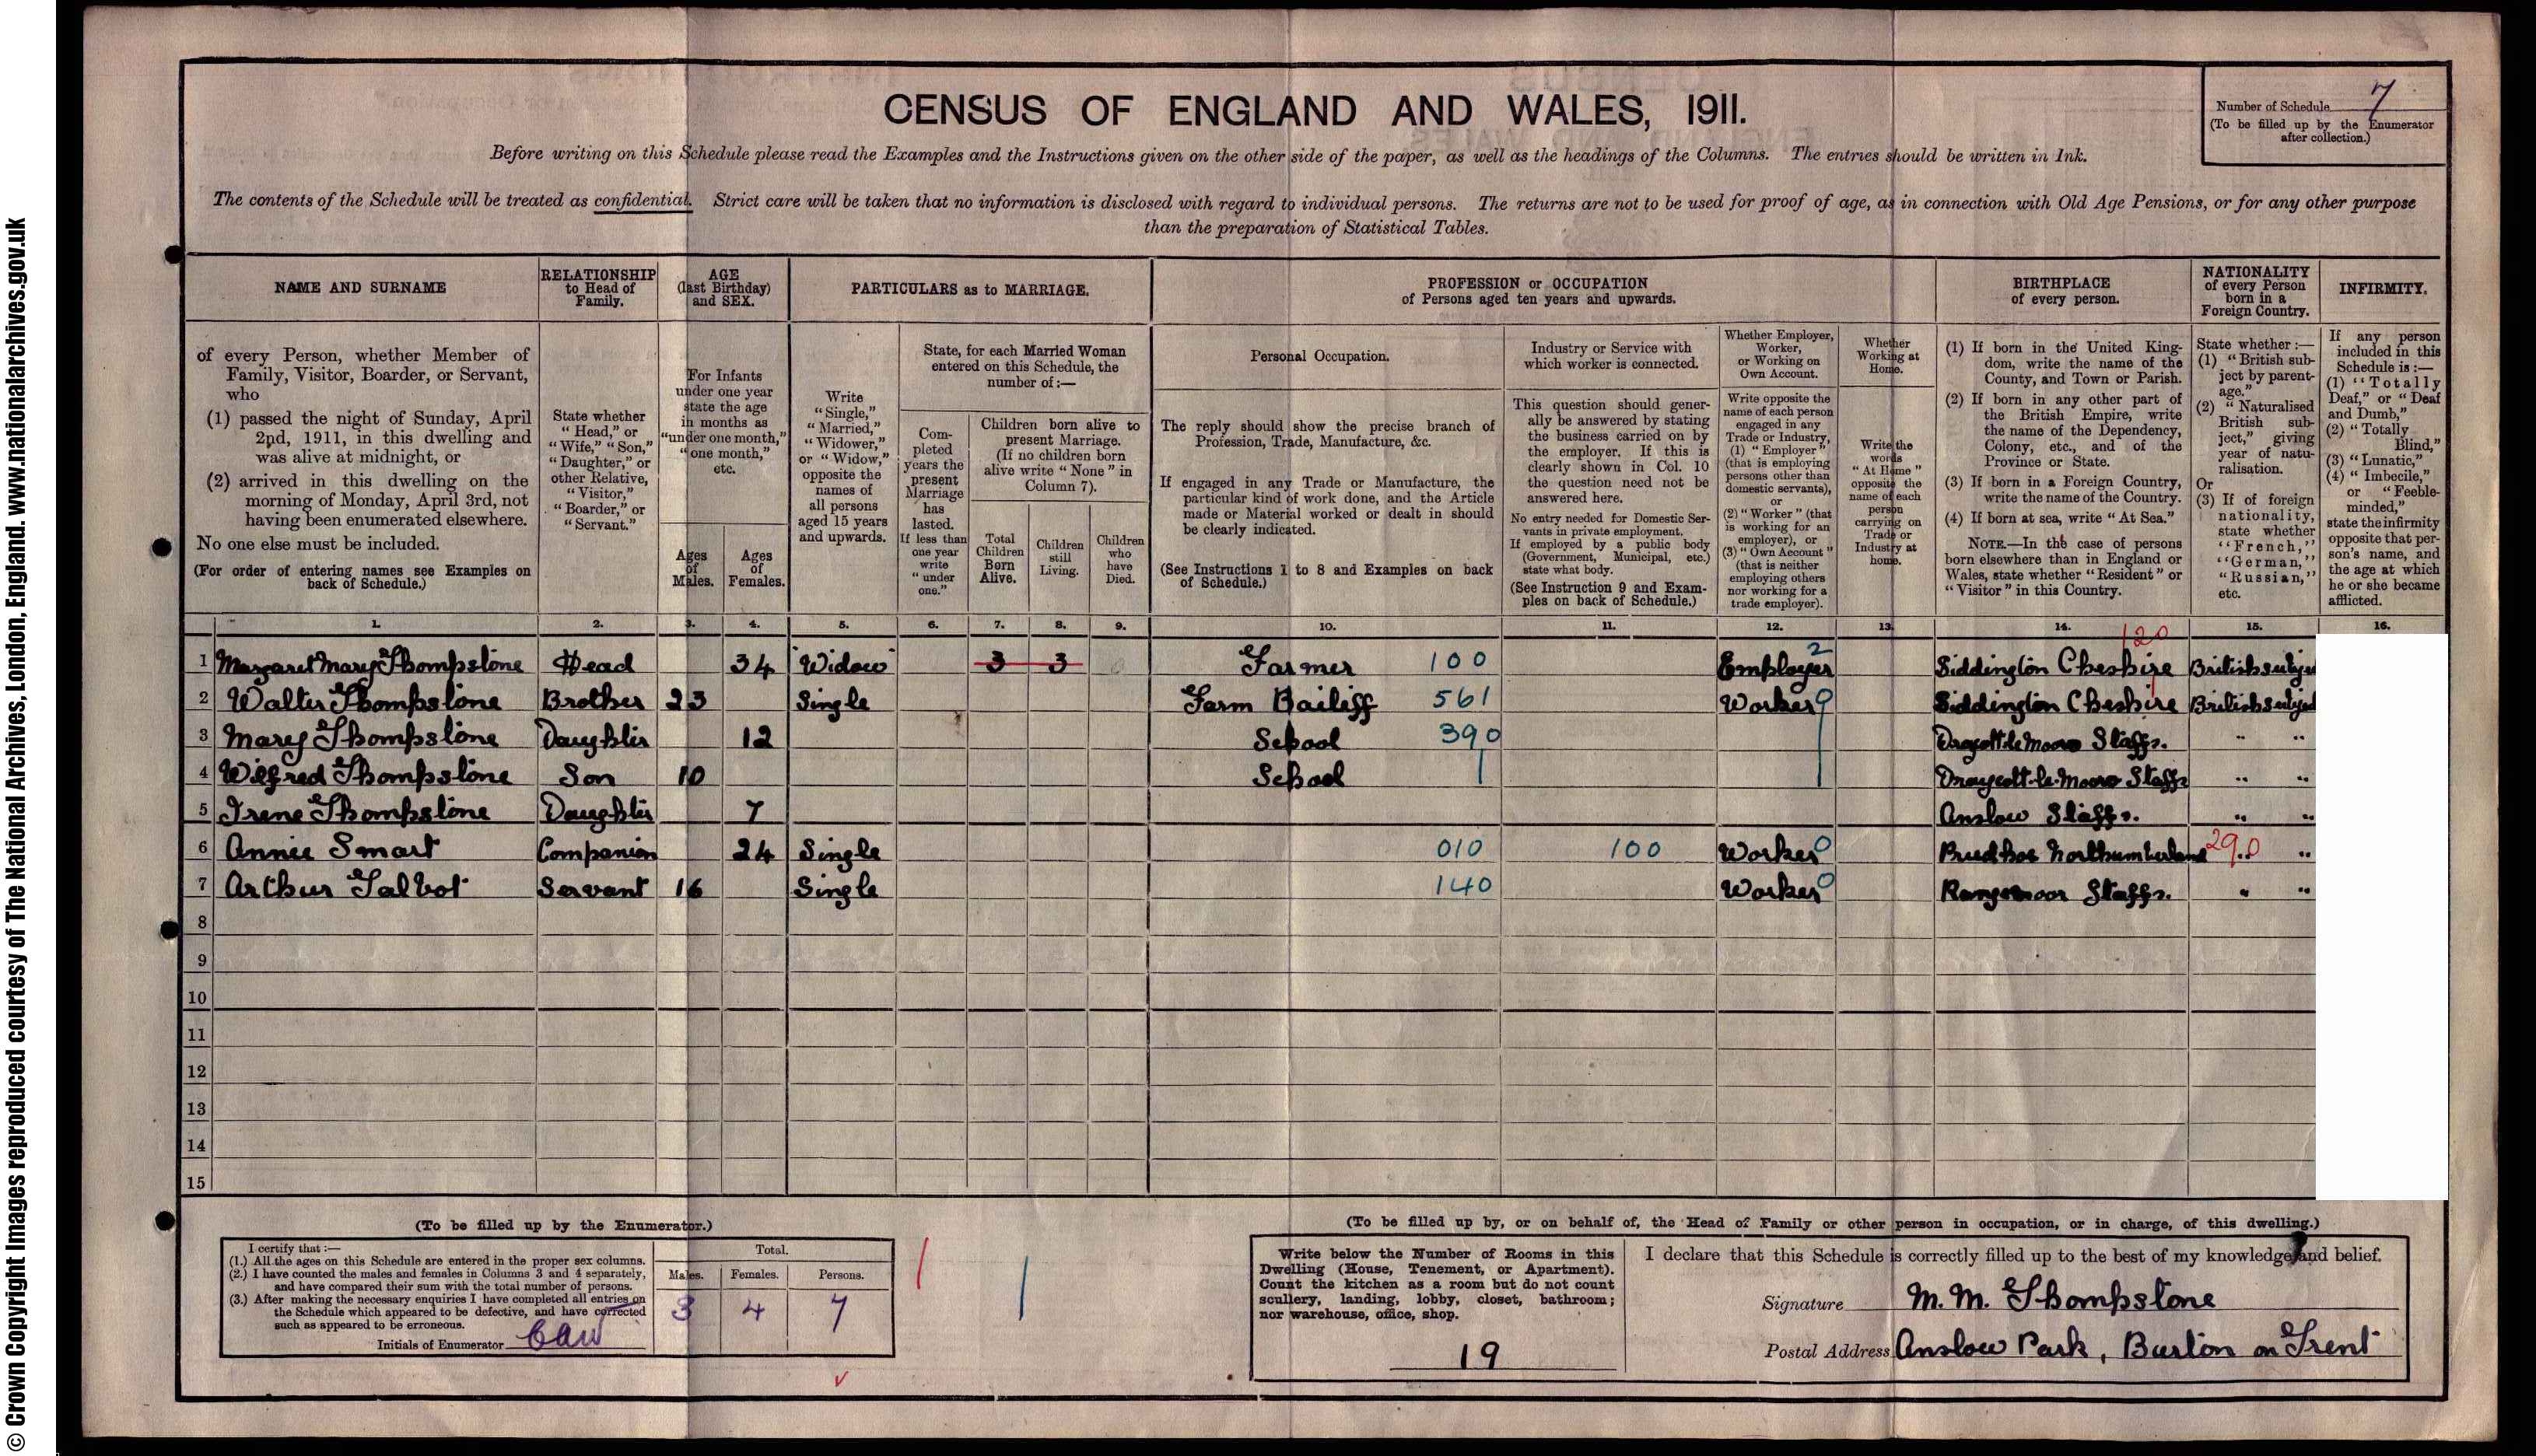 © Crown Copyright Images reproduced courtesy of The National Archives, London, England. www.nationalarchives.gov.uk
CENSUS OF ENGLAND AND WALES, 1911.
Number of Schedule 7
(To be filled up by the Enumerator
after collection.)
Before writing on this Schedule please read the Examples and the Instructions given on the other side of the paper, as well as the headings of the Columns. The entries should be written in Ink.
The contents of the Schedule will be treated as confidential. Strict care will be taken that no information is disclosed with regard to individual persons. The returns are not to be used for proof of age, as in connection with Old Age Pensions, or for any other purpose
than the preparation of Statistical Tables.
NAME AND SURNAME
RELATIONSHIP
to Head of
Family.
AGE
(last Birthday)
and SEX.
PARTICULARS as to MARRIAGE.
PROFESSION or OCCUPATION
of Persons aged ten years and upwards.
BIRTHPLACE
of every person.
NATIONALITY
of every Person
born in a
Foreign Country.
INFIRMITY.
of every Person, whether Member of
Family, Visitor, Boarder, or Servant,
who
(1) passed the night of Sunday, April
2nd, 1911, in this dwelling and
was alive at midnight, or
(2) arrived in this dwelling on the
morning of Monday, April 3rd, not
having been enumerated elsewhere.
No one else must be included.
(For order of entering names see Examples on
back of Schedule.)
State whether
"Head," or
"Wife," "Son,"
"Daughter," or
other Relative,
"Visitor,"
"Boarder," or
"Servant."
For Infants
under one year
state the age
in months as
"under one month,"
"one month,"
etc.
Ages
of
Males.
Ages
of
Females.
Write
"Single,"
"Married,"
"Widower,"
or "Widow,"
opposite the
names of
all persons
aged 15 years
and upwards.
State, for each Married Woman
entered on this Schedule, the
number of:—
Com-
pleted
years the
present
Marriage
has
lasted.
If less than
one year
write
"under
one."
Children born alive to
present Marriage.
(If no children born
alive write "None" in
Column 7).
Total
Children
Born
Alive.
Children
still
Living.
Children
who
have
Died.
Personal Occupation.
The reply should show the precise branch of
Profession, Trade, Manufacture, &c.
If engaged in any Trade or Manufacture, the
particular kind of work done, and the Article
made or Material worked or dealt in should
be clearly indicated.
(See Instructions 1 to 8 and Examples on back
of Schedule.)
Industry or Service with
which worker is connected.
This question should gener-
ally be answered by stating
the business carried on by
the employer. If this is
clearly shown in Col. 10
the question need not be
answered here.
No entry needed for Domestic Ser-
vants in private employment.
If employed by a public body
(Government, Municipal, etc.)
state what body.
(See Instruction 9 and Exam-
ples on back of Schedule.)
Whether Employer,
Worker,
or Working on
Own Account.
Write opposite the
name of each person
engaged in any
Trade or Industry,
(1) "Employer"
(that is employing
persons other than
domestic servants),
or
(2) "Worker" (that
is working for an
employer), or
(3) "Own Account"
(that is neither
employing others
nor working for a
trade employer).
Whether
Working at
Home.
Write the
words
"At Home"
opposite the
name of each
person
carrying on
Trade or
Industry at
home.
(1) If born in the United King-
dom, write the name of the
County, and Town or Parish.
(2) If born in any other part of
the British Empire, write
the name of the Dependency,
Colony, etc., and of the
Province or State.
(3) If born in a Foreign Country,
write the name of the Country.
(4) If born at sea, write "At Sea."
NOTE.—In the case of persons
born elsewhere than in England or
Wales, state whether "Resident" or
"Visitor" in this Country.
State whether:—
(1) "British sub-
ject by parent-
age."
(2) "Naturalised
British sub-
ject," giving
year of natu-
ralisation.
Or
(3) If of foreign
nationality,
state whether
"French,"
"German,"
"Russian,"
etc.
If any person
included in this
Schedule is:—
(1) "Totally
Deaf," or "Deaf
and Dumb,"
(2) "Totally
Blind,"
(3) "Lunatic,"
(4) "Imbecile,"
or "Feeble-
minded,"
state the infirmity
opposite that per-
son's name, and
the age at which
he or she became
afflicted.
1. 2. 3. 4. 5. 6. 7. 8. 9. 10. 11. 12. 13. 14. 15. 16.
120
1 Margaret Mary Thompstone Head 34 Widow 3 3 0 Farmer 100 Employer 2 Siddington Cheshire British subje
2 Walter Thompstone Brother 23 Single Farm Bailiff 561 Worker Siddington Cheshire British subject
3 Mary Thompstone Daughter 12 School 390 Draycott le Moors Staffs. " "
4 Wilfred Thompstone Son 10 School Draycott-le-Moors Staffs " "
5 Irene Thompstone Daughter 7 Anslow Staffs. " "
6 Annie Smart Companion 24 Single 010 100 Worker 0 Prudhoe Northumberland 290 " "
7 Arthur Talbot Servant 16 Single 140 Worker 0 Rangemoor Staffs. " "
8
9
10
11
12
13
14
15
(To be filled up by the Enumerator.)
I certify that:—
(1.) All the ages on this Schedule are entered in the proper sex columns.
(2.) I have counted the males and females in Columns 3 and 4 separately,
and have compared their sum with the total number of persons.
(3.) After making the necessary enquiries I have completed all entries on
the Schedule which appeared to be defective, and have corrected
such as appeared to be erroneous.
Initials of Enumerator
Total.
Males. Females. Persons.
3 4 7
(To be filled up by, or on behalf of, the Head of Family or other person in occupation, or in charge, of this dwelling.)
Write below the Number of Rooms in this
Dwelling (House, Tenement, or Apartment).
Count the kitchen as a room but do not count
scullery, landing, lobby, closet, bathroom;
nor warehouse, office, shop.
19
I declare that this Schedule is correctly filled up to the best of my knowledge and belief.
Signature M. M. Thompstone
Postal Address Anslow Park, Burton on Trent